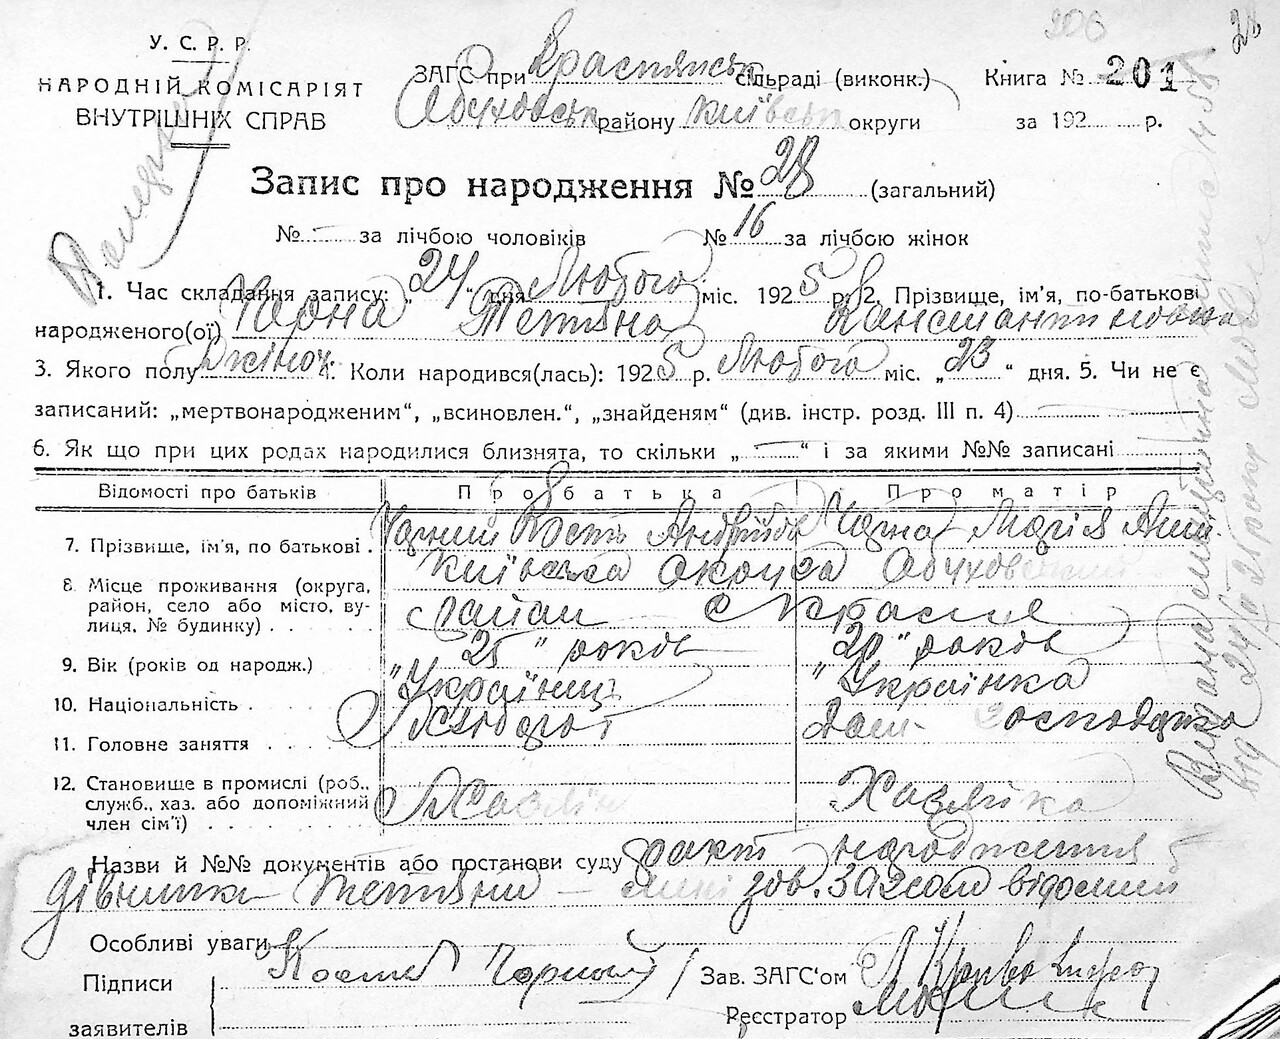 206
28
У. С. Р. Р.
НАРОДНІЙ КОМІСАРІЯТ
ВНУТРІШНІХ СПРАВ
ЗАГС при Краснянськ сільраді (виконк.)
Обуховськ району Київськ округи
Книга № 201
за 192 р.
Запис про народження № 28 (загальний)
№ – за лічбою чоловіків № 16 за лічбою жінок
1. Час складання запису: „24" дня Лютого міс. 1925 р. 2. Прізвище, ім'я, по-батькові
народженого(ої) Чорна Тетяна Констянтиновна
3. Якого полу жіноч 4. Коли народився(лась): 1925 р. Лютого міс. „23" дня. 5. Чи не є
записаний: „мертвонародженим", „всиновлен.", „знайденям" (див. інстр. розд. III п. 4) —
6. Як що при цих родах народилися близнята, то скільки „—" і за якими №№ записані
Відомості про батьків Про батька Про матір
7. Прізвище, ім'я, по батькові . Чорний Кость Андрійов Чорна Марія
8. Місце проживання (округа, район, село або місто, вулиця, № будинку) . . Київська округа Обуховський
район с Красне
9. Вік (років од народж.) „25" років „20" років
10. Національність . Українець Українка
11. Головне заняття . . . . Хлібороб Дом. господарка
12. Становище в промислі (роб., служб., хаз. або допоміжний член сім'ї) . . . . Хазяїн Хазяйка
Назви й №№ документів або постанови суду факт народження
дівчинки Тетяни — мені зов. ЗАГСом відомий
Особливі уваги
Підписи
заявителів
Кость Чорний
Зав. ЗАГС'ом
Реєстратор